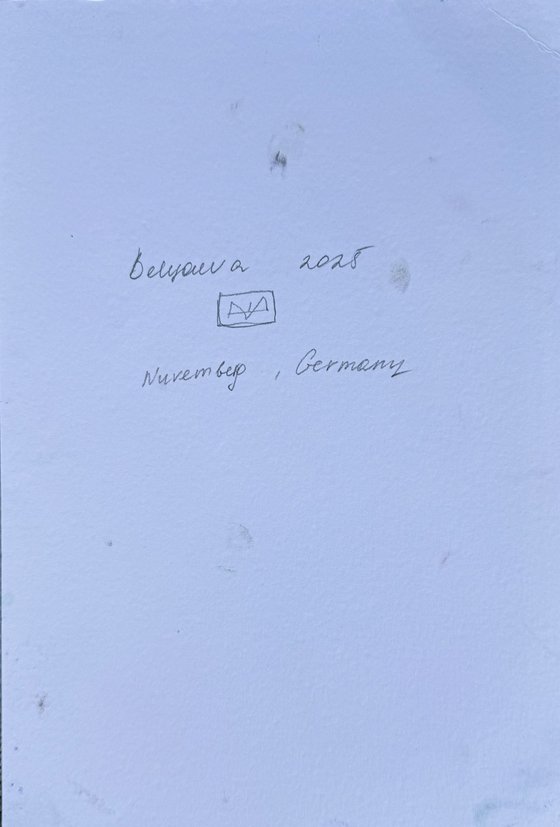 Belyaeva 2025
Nuremberg, Germany